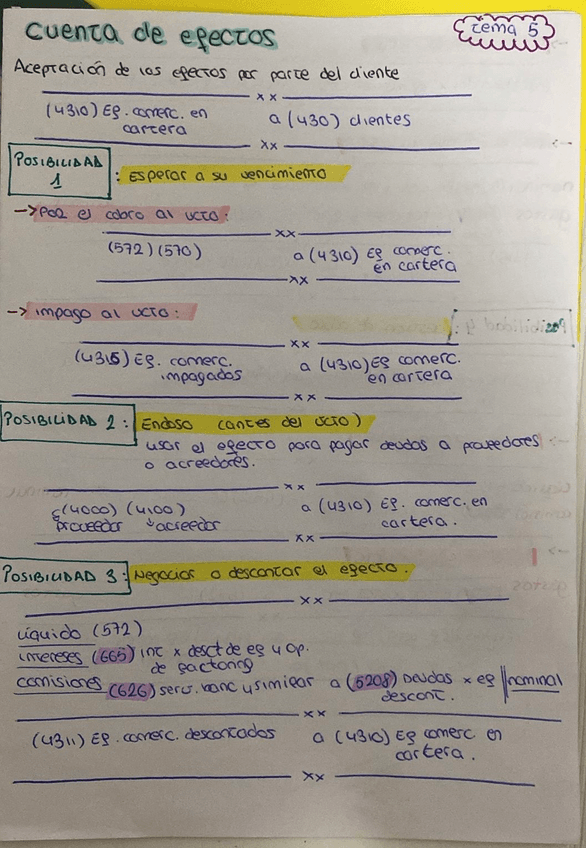 Cuenta de efectos
Tema 5
Aceptación de los efectos por parte del cliente
xx
(4310) Ef. comerc. en cartera a (430) clientes
xx
POSIBILIDAD 1 : Esperar a su vencimiento
-> Por el cobro al vcto:
xx
(572) (570) a (4310) Ef comerc. en cartera
xx
-> impago al vcto:
xx
(4315) Ef. comerc. impagados a (4310) Ef comerc. en cartera
xx
POSIBILIDAD 2 : Endoso (antes del vcto)
usar el efecto para pagar deudas a proveedores
o acreedores.
xx
(4000) (4100) a (4310) Ef. comerc. en cartera.
proveedor acreedor
xx
POSIBILIDAD 3 : Negociar o descontar el efecto.
xx
Líquido (572)
intereses (665) int x desct de ef y op. de factoring
comisiones (626) serv. banc y similar a (5208) Deudas x ef descont. || nominal
xx
(4311) Ef. comerc. descontados a (4310) Ef comerc en cartera.
xx